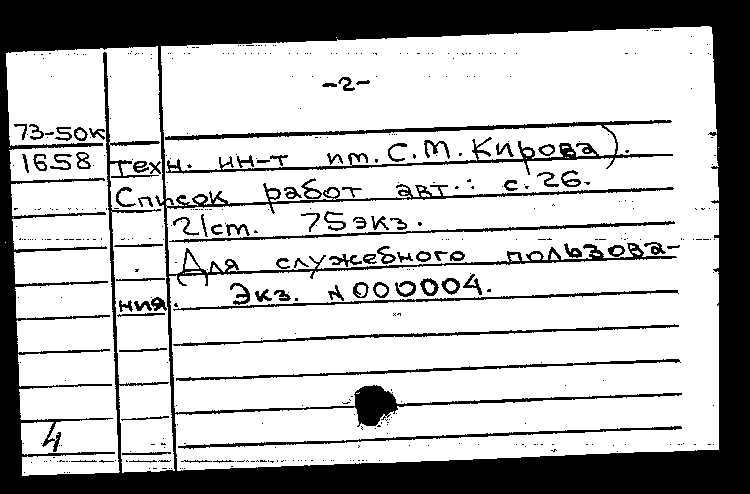 -2-
73-50к
1658 техн. ин-т им. С.М. Кирова).
Список работ авт.: с. 26.
21см. 75экз.
Для служебного пользова-
ния. Экз. N000004.
4